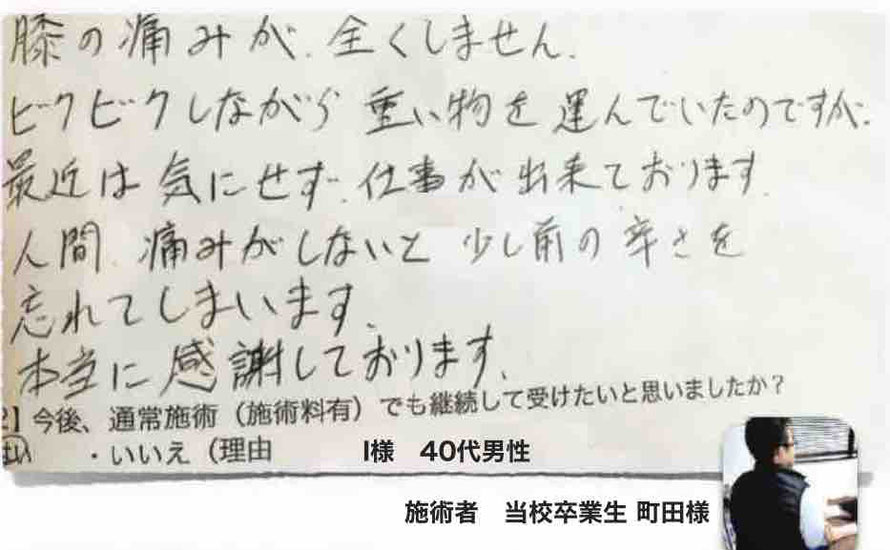 膝の痛みが、全くしません。
ビクビクしながら 重い物を 運んでいたのですが、
最近は 気にせず、仕事が 出来ております。
人間、痛みがしないと 少し前の 辛さを
忘れてしまいます。
本当に 感謝しております。
2】今後、通常施術（施術料有）でも継続して受けたいと思いましたか？
はい ・いいえ（理由
I様　40代男性
施術者　当校卒業生 町田様